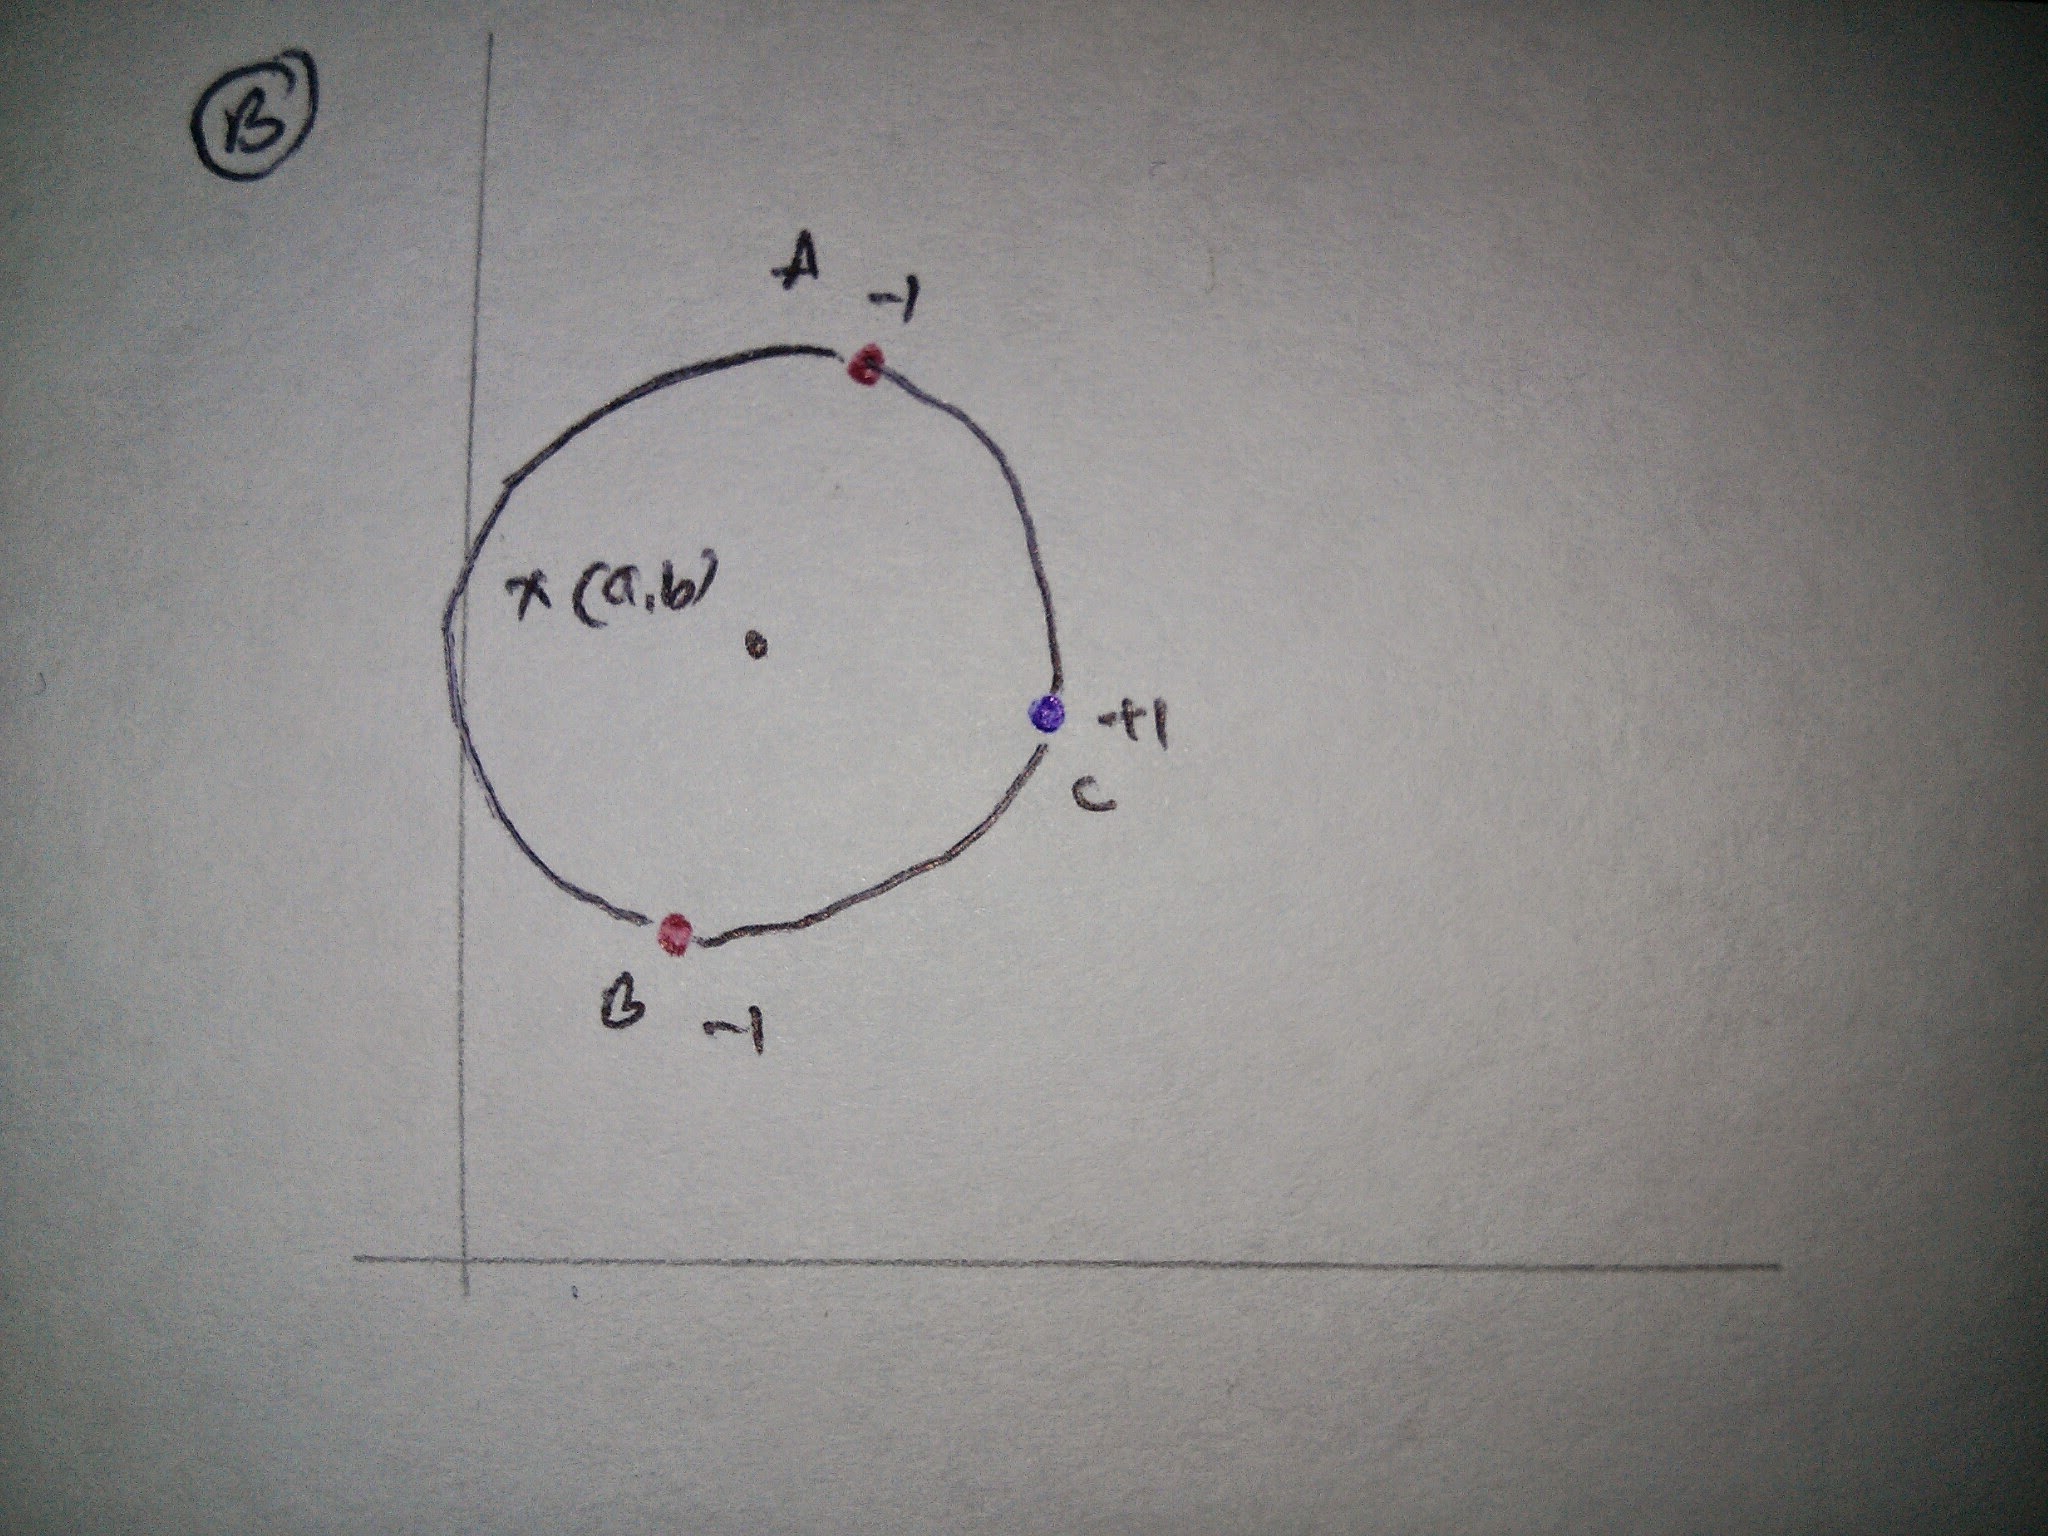 B
A
-1
x (a,b)
+1
C
B
-1